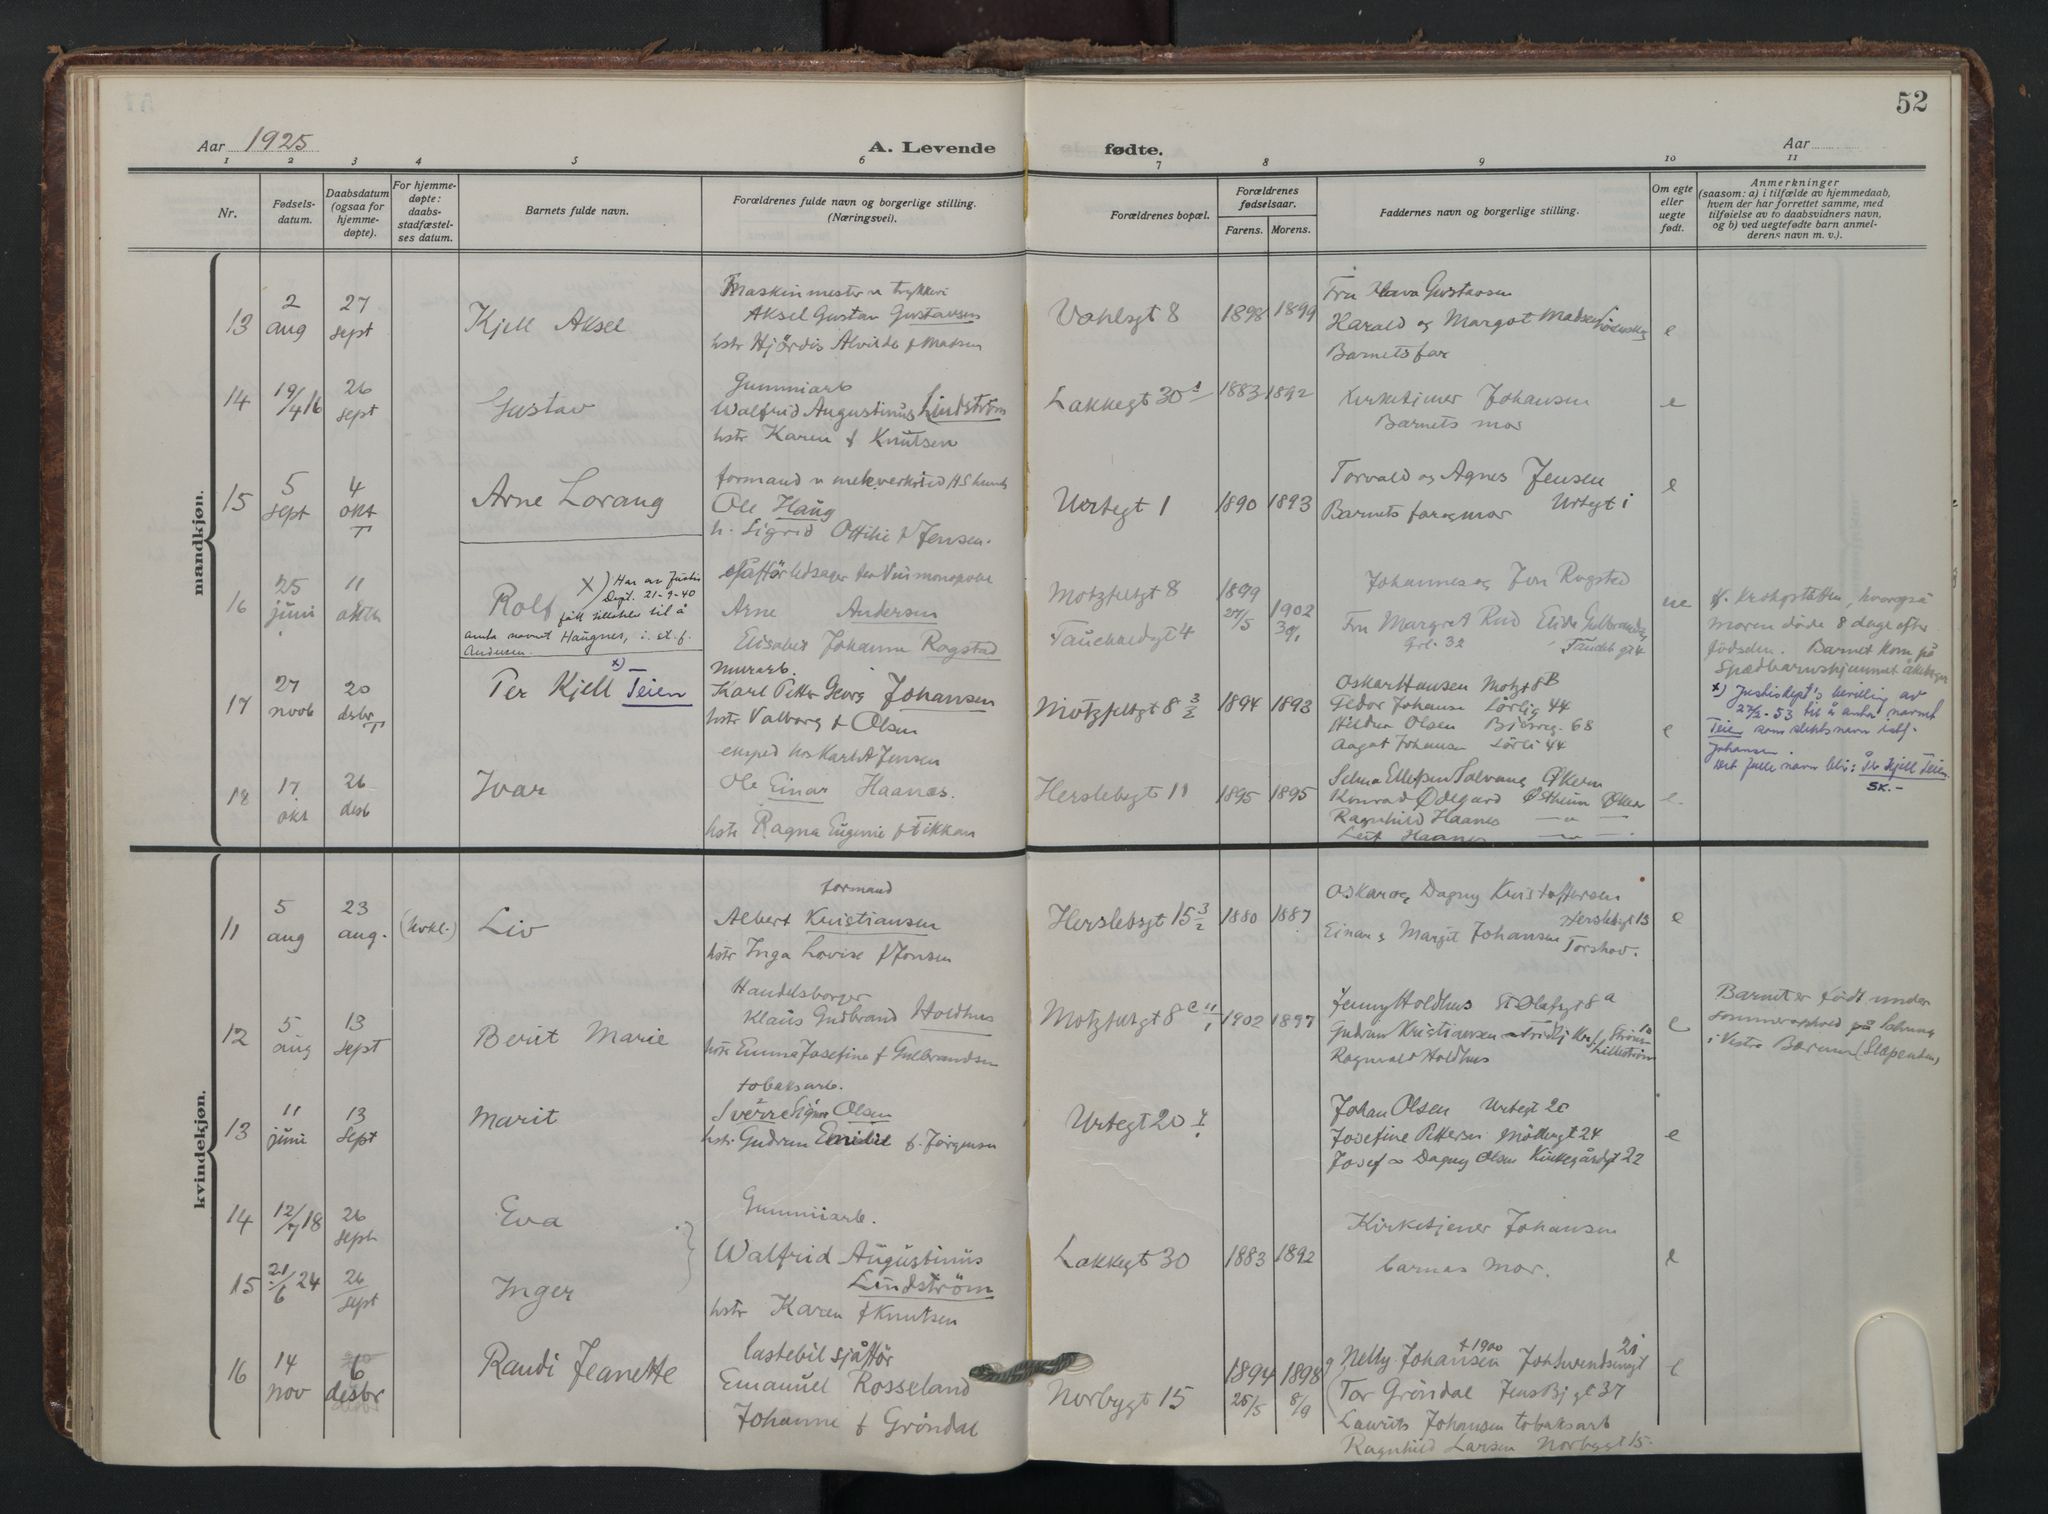 52
Aar 1925
A. Levende fødte.
Aar
1 2 3 4 5 6 7 8 9 10 11
Nr.
Fødsels-
datum.
Daabsdatum
(ogsaa for
hjemme-
døpte).
For hjemme-
døpte:
daabs-
stadfæstel-
ses datum.
Barnets fulde navn.
Forældrenes fulde navn og borgerlige stilling.
(Næringsvei).
Forældrenes bopæl.
Forældrenes
fødselsaar.
Farens. Morens.
Faddernes navn og borgerlige stilling.
Om egte
eller
uegte
født.
Anmerkninger
(saasom: a) i tilfælde av hjemmedaab,
hvem der har forrettet samme, med
tilføielse av to daabsvidners navn,
og b) ved uegtefødte barn anmel-
derens navn m. v.).
mandkjøn.
13
2
aug
27
sept
Kjell Aksel
Maskinmester v trykkeri
Aksel Gustav Gustavsen
hstr Hjördis Alvilde f Madsen
Vahlsgt 8
1898 1899
Fru Gustavsen
Harald og Margot Madsen
Barnets far
e
14
19/4 16
26
sept
Gustav
Gummiarb
Walfrid Augustinus Lindström
hstr Karen f Knutsen
Lakkegt 30
1883 1892
Kirketjener Johansen
Barnets mor
e
15
5
sept
4
okt
Arne Lorang
formand v mek.
Ole Haug
h. Sigrid Ottilie f Jensen.
Urtegt 1
1890 1893
Torvald og Agnes Jensen
Barnets far og mor Urtegt 1
e
16
25
juni
11
okt
Rolf
x) Har av Justis
Dept. 21-9-40
fått tillatelse til å
anta navnet Haugnes, i st. f.
Andersen.
Arne Andersen
Elisabet Johanne Rogstad
Motzfeltgt 8
Tøuchnedgt 4
1899
27/5
1902
Johannes og Rogstad
Fru Margret Rud Elida Gulbrandsen
Grl. 32
ue
moren døde 8 dage efter
födselen. Barnet kom på
Spædbarnshjemmet
17
27
novb
20
desbr
Per Kjell x) Teien
Murarb.
Karl Petter Georg Johansen
hstr Valborg f Olsen
Motzfeltgt 8 3/2
1894 1893
Oskar Hansen Motzgt 8B
Johansen Lörlig 44
Hilda Olsen 68
Aagot Johansen Lörli 44
e
x) Justisdept's bevilling av
27/2-53 til å anta navnet
Teien som slektsnavn istf.
Johansen.
Det fulle navn blir: Per Kjell Teien
SK.-
18
17
okt
26
desb
Ivar
eksped hos Karl A Jensen
Ole Einar Haanes.
hstr Ragna Eugenie f Fikkan
Herslebsgt 11
1895 1895
Selma Ellefsen Solvang Økern
Konrad Ødegard Østheim Økern
Ragnhild Haanes
Leif Haanes
e
kvindekjøn.
11
5
aug
23
aug.
Liv
formand
Albert Kristiansen
hstr Inga Lovise f Jonsen
Herslebsgt 15 3/2
1880 1887
Oskar og Dagny Kristoffersen
Herslebsgt 15
Einar og Margit Johansen
Torshov.
e
12
5
aug
13
sept
Berit Marie
Handelsborger
Klaus Gudbrand Holdhus
hstr Emma Josefine f Gulbrandsen
Motzfeltgt 8
1902 1897
Jenny Holdhus St Olafsgt 8 a
Gudrun Kristiansen
Ragnvald Holdhus
e
Barnet er födt under
sommerophold på Solhaug
i Vestre Bærum (Slependen)
13
11
juni
13
sept
Marit
tobaksarb.
Sverre Sigurd Olsen
hstr. Gudrun Emilie f. Jörgensen
Urtegt 20 I
Johan Olsen Urtegt 20
Josefine Pettersen Möllergt 24
Josef o Dagny Olsen Kirkegårdsgt 22
e
14
12/7 18
26
sept
Eva
15
21/6 24
26
sept
Inger
Gummiarb.
Walfrid Augustinus
Lindström
hstr Karen f Knutsen
Lakkegt 30
1883 1892
Kirketjener Johansen
barnas mor.
e
16
14
nov
6
desbr
Randi Jeanette
lastebil sjåffør
Emanuel Rosseland
Johanne f Gröndal
Norbygt 15
1894
25/5
1898
8/9
Nelly Johansen f 1900
Tor Gröndal Jens Bj gt 37
Laurits Johansen tobaksarb
Ragnhild Larsen Norbygt 15.
e